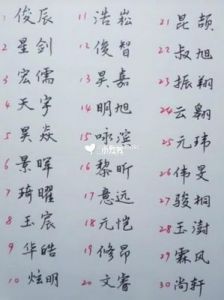 1 俊辰
2 星剑
3 宏儒
4 天宇
5 昊焱
6 景晖
7 琦曜
8 玉宸
9 华皓
10 炫明
11 浩崧
12 俊智
13 昊嘉
14 明旭
15 咏泽
16 黎昕
17 意远
18 元恺
19 修昂
20 文睿
21 昆颉
22 叔旭
23 振翔
24 云翱
25 元玮
26 伟旻
27 骏桐
28 玉澍
29 霖风
30 尚轩
小红书